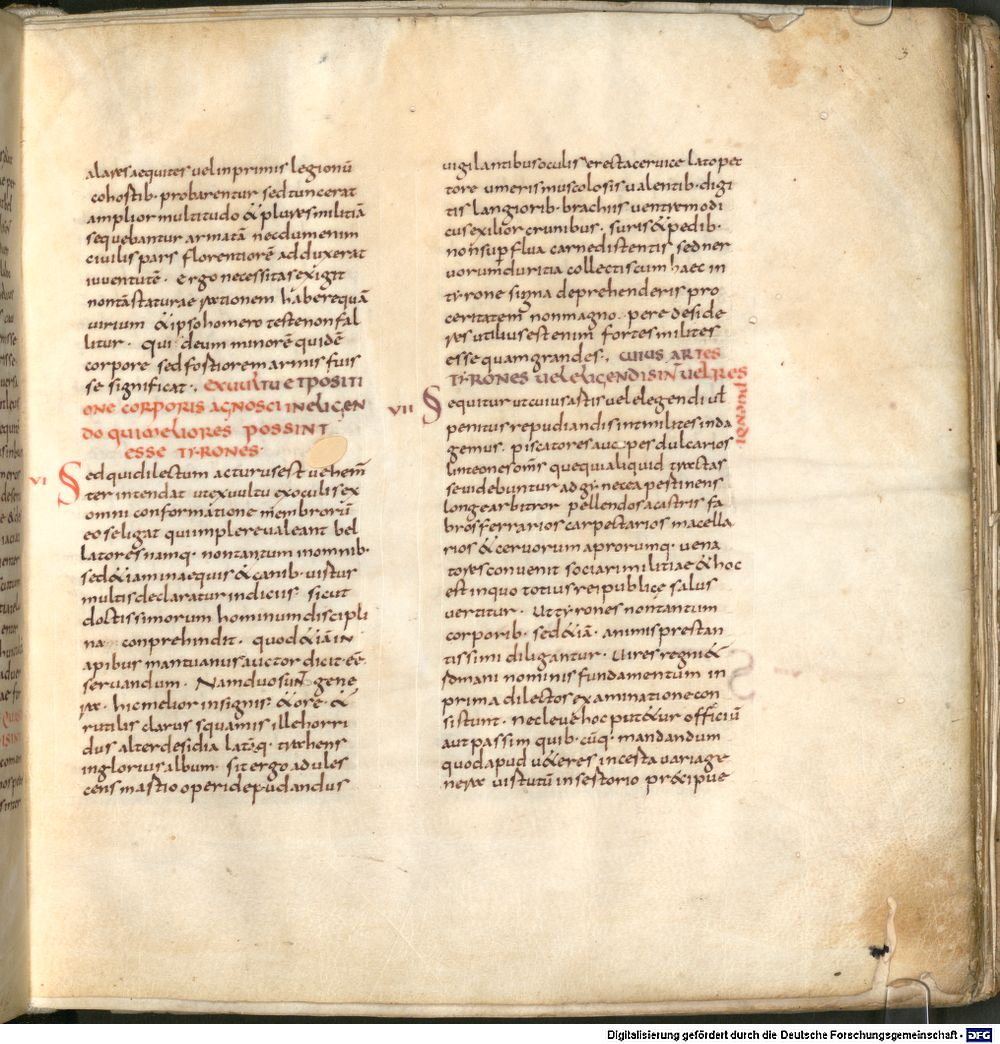 3
alares aequites uel in primis legionū
cohostib· probarentur sed tunc erat
amplior multitudo & plures militiā
sequebantur armatā necdum enim
ciuilis pars florentiorē adduxerat
iuuentutē· ergo necessitas exigit
non tā staturae rationem haberequā
uirium & ipso homero teste non fal
litur· qui deum minorē quidē
corpore sed fostiorem armis fuis
se significat·, EX VULTU ET POSITI
ONE CORPORIS AGNOSCI IN ELIGEN
DO QUI MELIORES POSSINT
ESSE TYRONES·
VI Sed qui dilectum acturus est uehem̄
ter intendat ut ex uultu ex oculis ex
omni conformatione membrorū
eos eligat qui implere ualeant bel
latores namq· non tantum in omnib·
sed & iam in aequis & canib· uistus
multis declaratur indiciis sicut
doctissimorum hominum discipli
na conprehindit· quod & iā in
apibus mantuanus auctor dicit eē
seruandum· Nam duo sun̄ gene
ra· hic melior insignis & ore· &
rutilis clarus squamis ille horri
dus alter desidia latāq· trahens
inglorius album· sit ergo adules
cens mastio operi depudandus
uigilantibus oculis erecta ceruice lato pec
tore umeris musculosis ualentib· digi
tis langiorib· brachiis uentre modi
cus exilior crunibus· suris & pedib·
non sup̄flua carne distentis sed ner
uorum duritia collectis cum haec in
tyrone signa deprehenderis pro
ceritatem̄ non magno pere deside
res utilius est enim fortes milites
esse quam grandes·, CUIUS ARTES
TYRONES UEL ELIGENDI SIN̄ UEL RES
PUENDI
VII Sequitur ut cuius astis uel elegendi ul̄
penitus repudiandi sint milites inda
gemus· piscatores aucupes dulcarios
linteones om̄s quequi aliquid tractas
se uidebuntur ad gynecea pestinens
longe arbitror pellendos a castris fa
bros ferrarios carpectarios macella
rios & ceruorum aprorumq· uena
tores conuenit sociari militiae & hoc
est in quo totius rei publicę salus
uertitur· Ut tyrones non tantum
corporib· sed & iā· animis prestan
tissimi diligantur· Uires regni &
romani nominis fundamentum in
prima dilectos examinatione con
sistunt· nec leue hoc put&ur officiū
aut passim quib· cūq· mandandum
quod apud u&eres in cesta uaria ge
nera uistutū in sestorio precipue
Digitalisierung gefördert durch die Deutsche Forschungsgemeinschaft - DFG